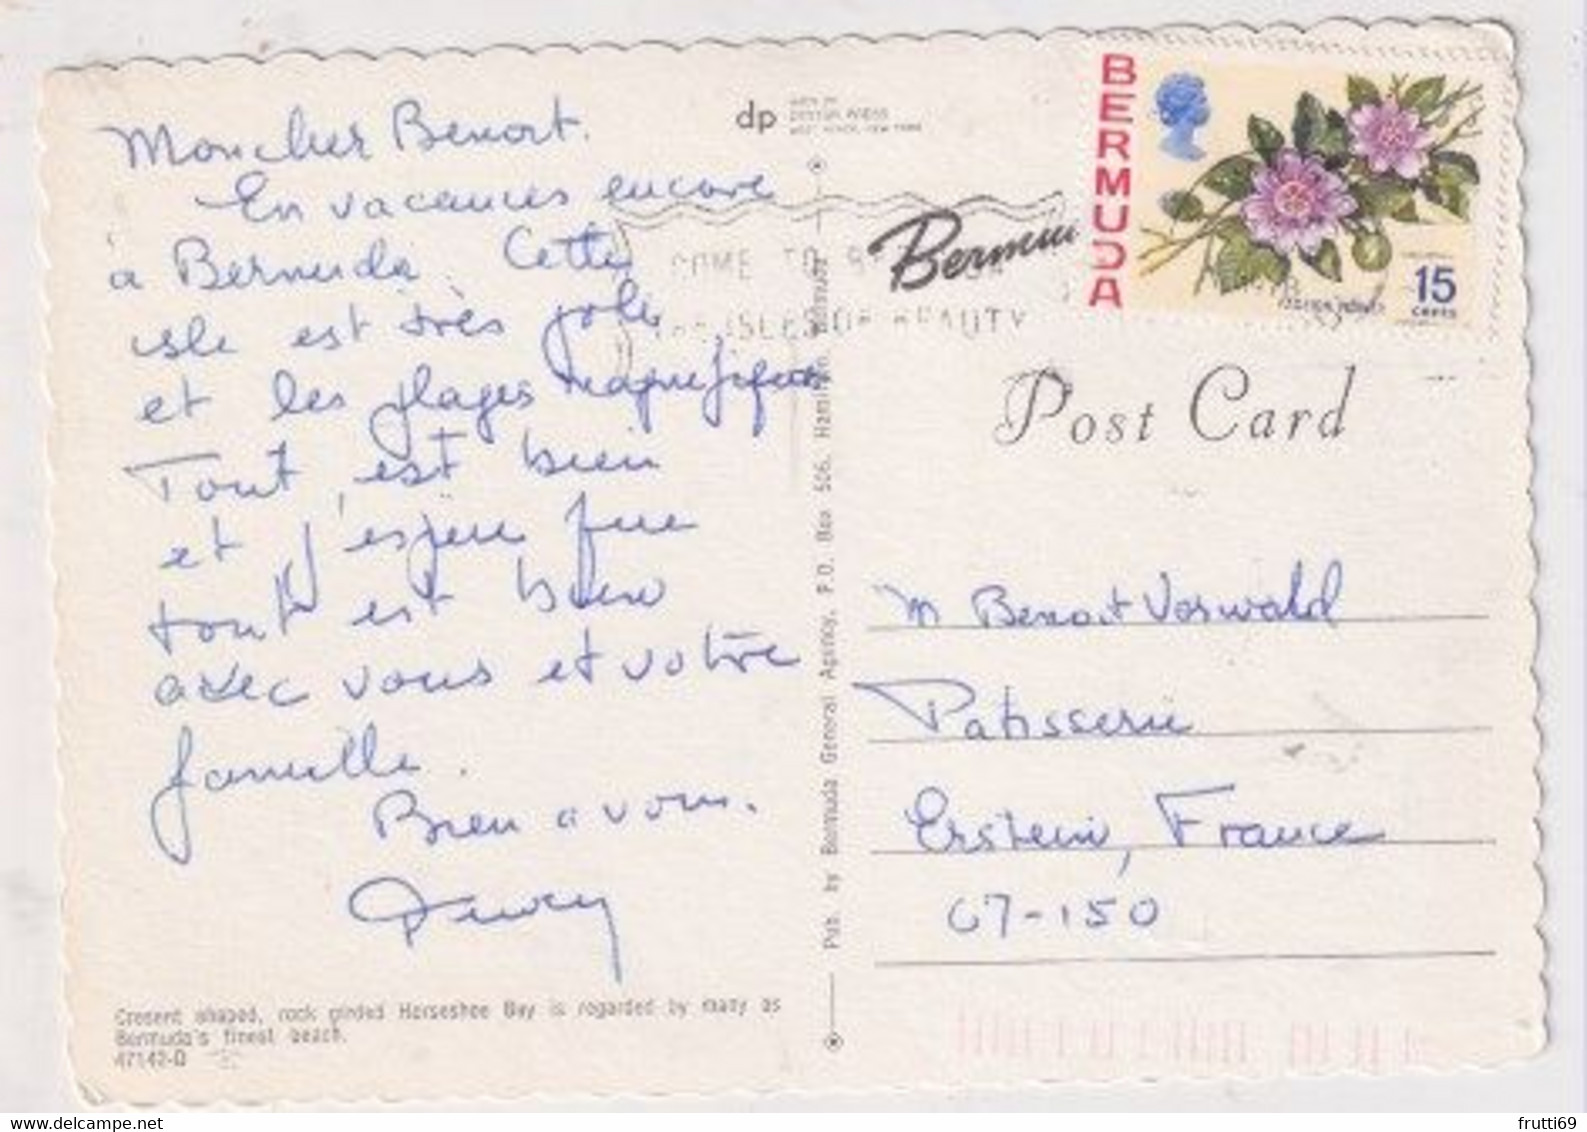 Mon cher Benoit.
En vacances encore
a Bermuda. Cette
isle est très jolie
et les plages magnifiques
Tout est bien
et j'espère que
tout est bien
avec vous et votre
famille.
Bien a vous.
Cresent shaped, rock girded Horseshoe Bay is regarded by many as
Bermuda's finest beach.
47142-D
dp
DEXTER PRESS
WEST NYACK, NEW YORK
Pub. by Bermuda General Agency, P.O. Box 506, Hamilton, Bermuda
COME TO
ISLES OF BEAUTY
BERMUDA
15
CENTS
Post Card
M Benoit Vorwald
Patisserie
Erstein, France
67-150
frutti69